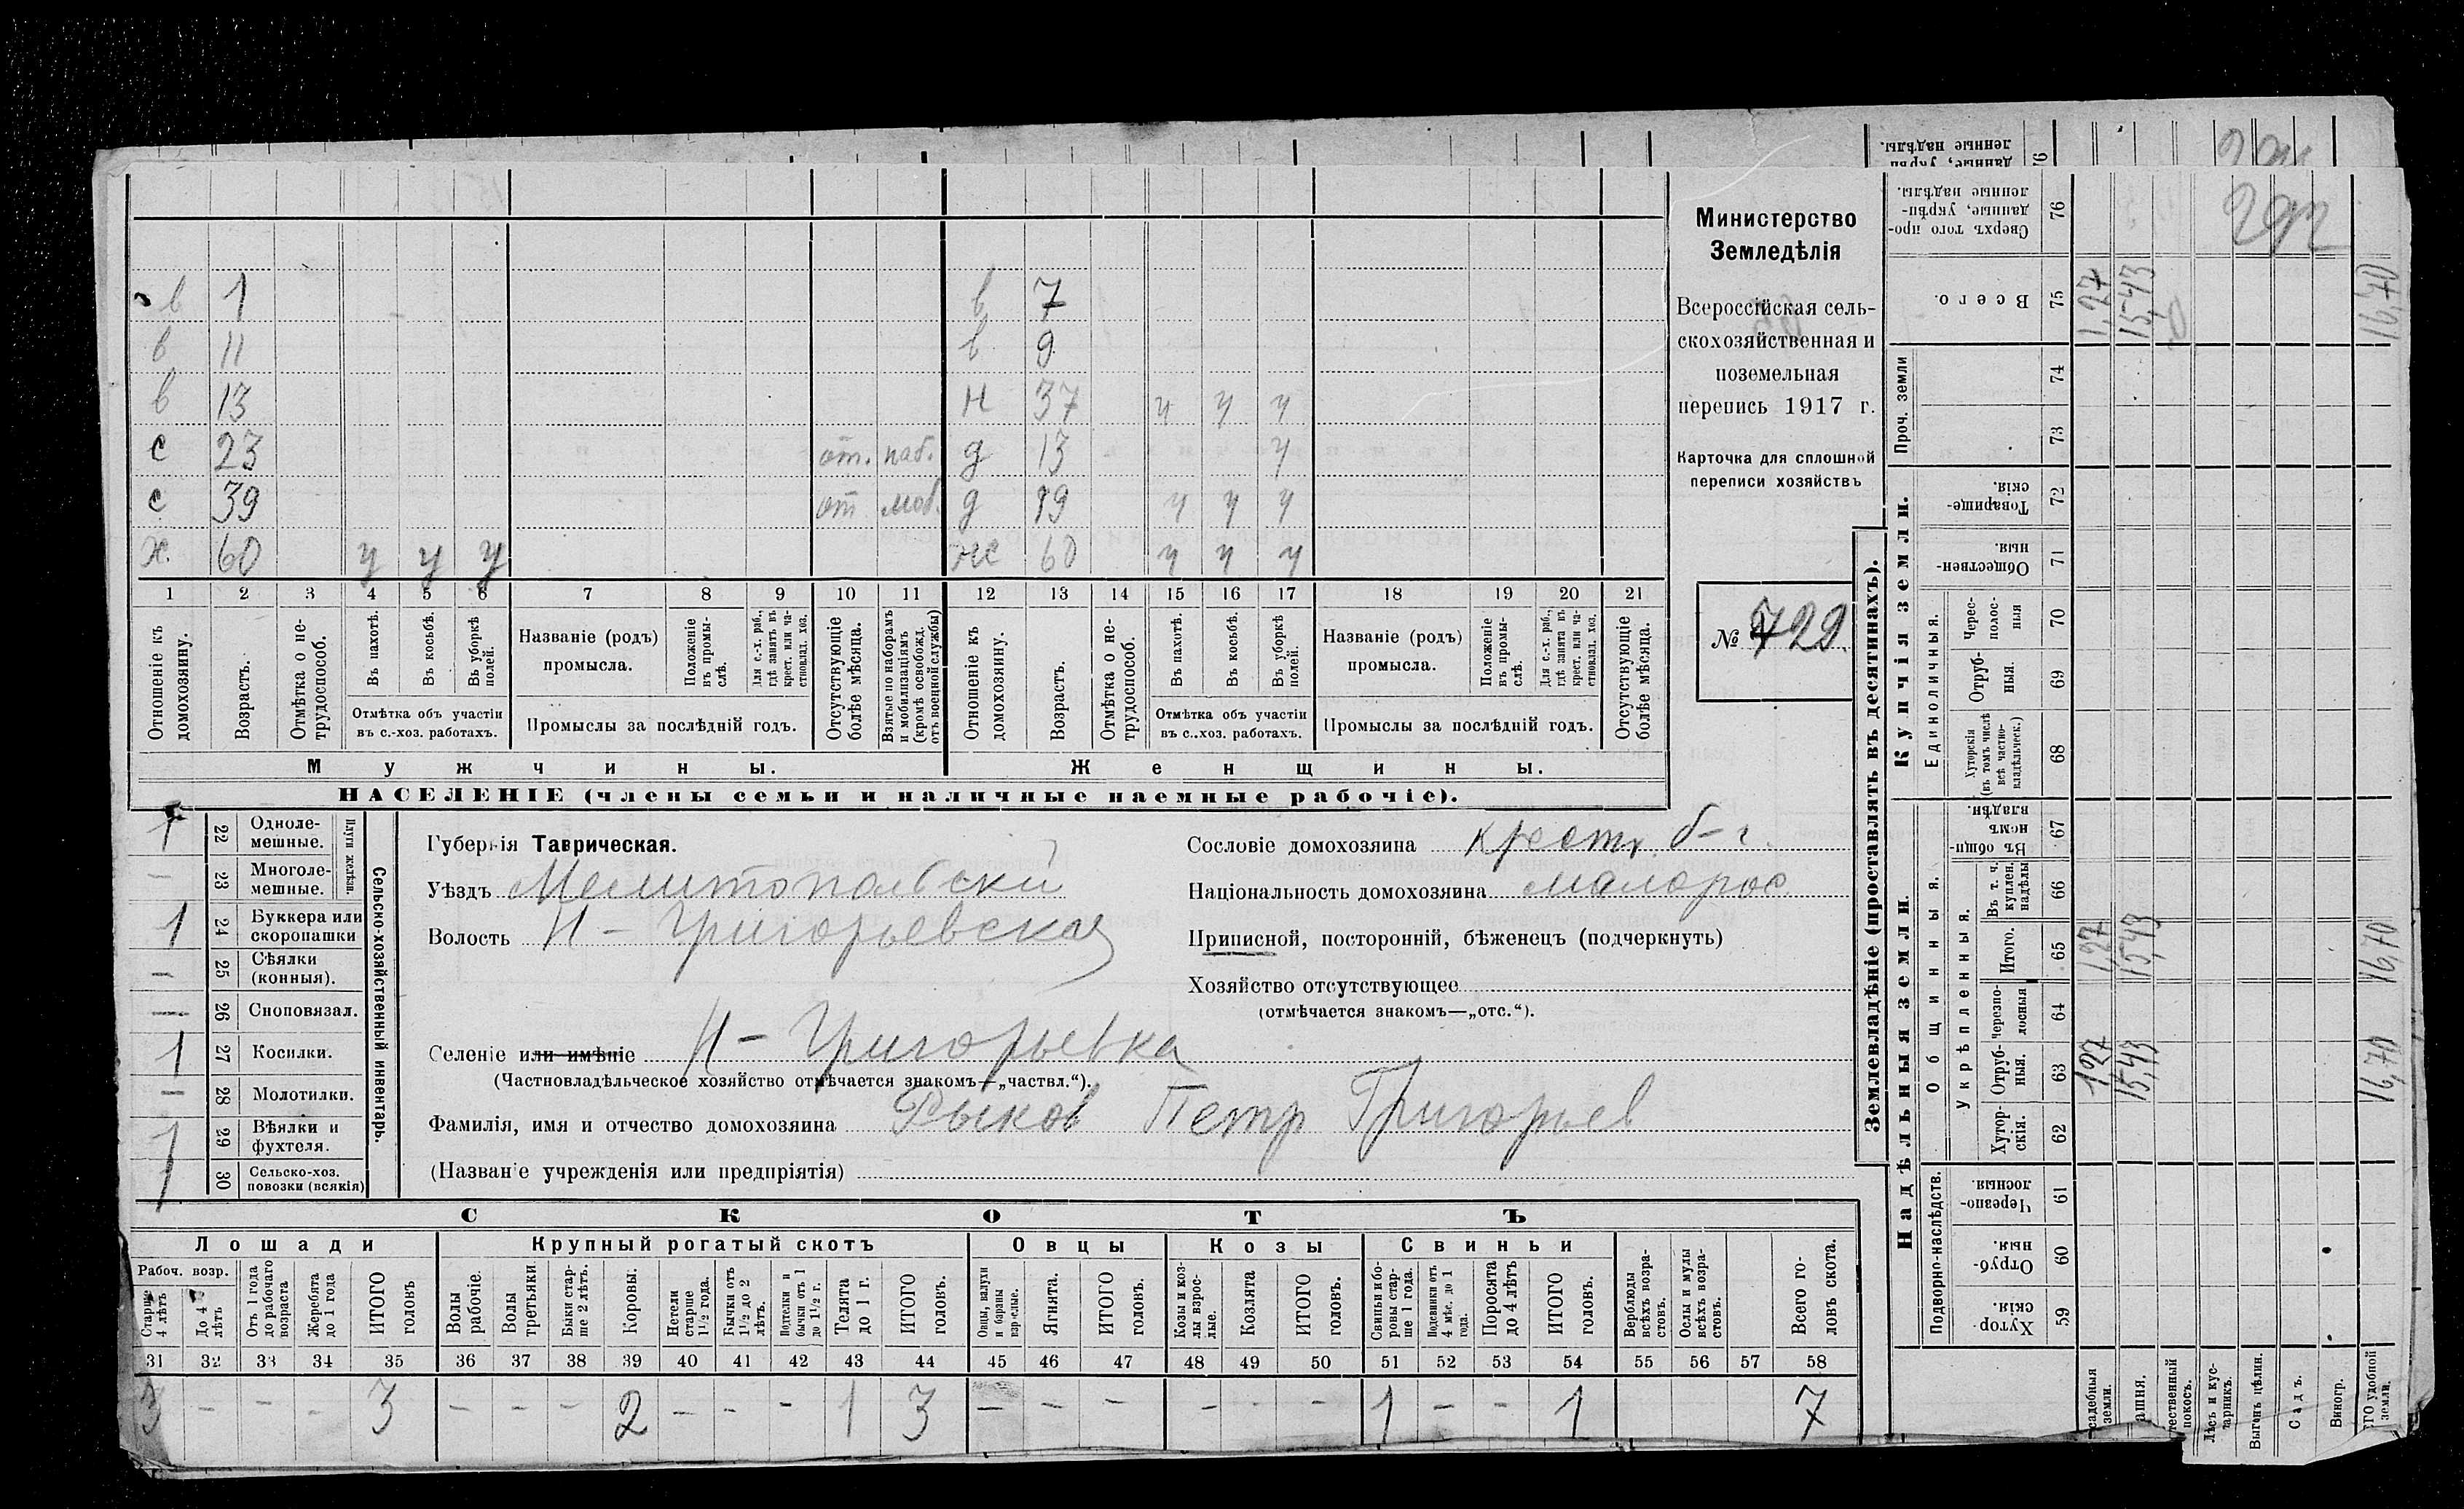 Министерство
Земледѣлія
Всероссійская сель-
скохозяйственная и
поземельная
перепись 1917 г.
Карточка для сплошной
переписи хозяйствъ
№ 729.
в 1 в 7
в 11 в 9
в 13 н 37 ч ч ч
с 23 от. наб. д 13 ч
с 39 от моб. д 19 ч ч ч
х. 60 у у у же 60 ч ч ч
1 2 3 4 5 6 7 8 9 10 11 12 13 14 15 16 17 18 19 20 21
Отношеніе къ домохозяину.
Возрастъ.
Отмѣтка о не-трудоспособ.
Въ пахотѣ.
Въ косьбѣ.
Въ уборкѣ полей.
Отмѣтка объ участіи въ с.-хоз. работахъ.
Названіе (родъ) промысла.
Положеніе въ промы-слѣ.
Для с.-х. раб., гдѣ занятъ въ крест. или ча-стновлад. хоз.
Промыслы за послѣдній годъ.
Отсутствующіе болѣе мѣсяца.
Взятые по наборамъ и мобилизаціямъ (кромѣ освобожд. отъ военной службы)
Отношеніе къ домохозяину.
Возрастъ.
Отмѣтка о не-трудоспособ.
Въ пахотѣ.
Въ косьбѣ.
Въ уборкѣ полей.
Отмѣтка объ участіи въ с..хоз. работахъ.
Названіе (родъ) промысла.
Положеніе въ промы-слѣ.
Для с.-х. раб., гдѣ занята въ крест. или ча-стновлад. хоз.
Промыслы за послѣдній годъ.
Отсутствующіе болѣе мѣсяца.
Мужчины. Женщины.
НАСЕЛЕНІЕ (члены семьи и наличные наемные рабочіе).
Сельско-хозяйственный инвентарь.
Плуги желѣзн.
1 22 Одноле-мешные.
— 23 Многоле-мешные.
1 24 Буккера или скоропашки
— 25 Сѣялки (конныя).
— 26 Сноповязал.
1 27 Косилки.
— 28 Молотилки.
1 29 Вѣялки и фухтеля.
30 Сельско-хоз. повозки (всякія)
Губернія Таврическая.
Уѣздъ Мелитопольский
Волость Н-Григорьевская
Селеніе или имѣніе Н-Григорьевка
(Частновладѣльческое хозяйство отмѣчается знакомъ—„частвл.“).
Фамилія, имя и отчество домохозяина Рыков Петр Григорьев
(Названіе учрежденія или предпріятія)
Сословіе домохозяина крестн. б-г.
Національность домохозяина малорос
Приписной, посторонній, бѣженецъ (подчеркнуть)
Хозяйство отсутствующее
(отмѣчается знакомъ—„отс.“).
СКОТЪ
Лошади Крупный рогатый скотъ Овцы Козы Свиньи
Рабоч. возр.
Старше 4 лѣтъ
До 4 лѣтъ
Отъ 1 года до рабочаго возраста
Жеребята до 1 года
ИТОГО головъ
Волы рабочіе.
Волы третьяки
Быки стар-ше 2 лѣтъ.
Коровы.
Нетели старше 1½ года.
Бычки отъ 1½ до 2 лѣтъ.
Подтелки и бычки отъ 1 до 1½ г.
Телята до 1 г.
ИТОГО головъ.
Овцы, валухи и бараны взрослые.
Ягнята.
ИТОГО головъ.
Козы и коз-лы взрос-лые.
Козлята
ИТОГО головъ.
Свиньи и бо-ровы стар-ше 1 года.
Подсвинки отъ 4 мѣс. до 1 года.
Поросята до 4 лѣтъ
ИТОГО головъ.
Верблюды всѣхъ возра-стовъ.
Ослы и мулы всѣхъ возра-стовъ.
Всего го-ловъ скота.
31 32 33 34 35 36 37 38 39 40 41 42 43 44 45 46 47 48 49 50 51 52 53 54 55 56 57 58
3 — — — 3 — — — 2 — — — 1 3 — — — — - - 1 — — 1 7
Землевладѣніе (проставлять въ десятинахъ).
Купчія земли.
Надѣльныя земли.
Проч. земли
Единоличныя.
Общинныя.
Укрѣпленныя.
Подворно-наслѣдств.
Сверхъ того про-данные, укрѣп-ленные надѣлы. 76 292
Всего. 75 1,27 15,43 16,70
74
73
Товарище-скія. 72
Обществен-ныя. 71
Черес-полос-ныя 70
Отруб-ныя. 69
Хуторскія (въ томъ числѣ всѣ частно-владѣльческ.) 68
Въ общи-номъ владѣн. 67
Въ т. ч. куплен. надѣлы 66
Итого. 65 1,27 15,43 16,70
Черезпо-лосныя 64
Отруб-ныя. 63 1,27 15,43 16,70
Хутор-скія. 62
Черезпо-лосныя. 61
Отруб-ныя. 60
Хутор-скія. 59
садебныя земли.
ашня.
тественный покосъ.
Лѣсъ и кус-тарникъ.
Выгонъ цѣлин.
Садъ.
Виногр.
ГО удобной земли.